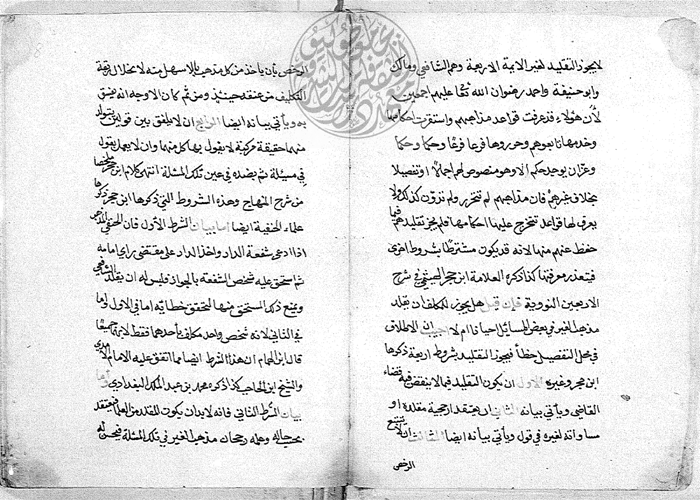 لا يجوز التقليد لغير الايمة الاربعة وهم الشافعي ومالك
وابو حنيفة واحمد رضوان الله تعالى عليهم اجمعين
لأن هؤلاء قد عرفت قواعد مذاهبهم واستقرت احكامها
وخدمها تابعوهم وحرروها فرعا فرعا وحكما وحكما
وعز ان يوجد حكم الا وهو منصوص لهم اجمالا او تفصيلا
بخلاف غيرهم فان مذاهبهم لم تتحرر ولم تدون كذلك ولا
يعرف لها قواعد تتخرج عليها احكامها فلم يجز تقليدهم فيما
حفظ عنهم منها لانه قد يكون مشترطا بشروط اخرى
فيتعذر معرفتها كذا ذكره العلامة ابن حجر الهيتمي في شرح
الاربعين النووية فان قيل هل يجوز للمكلف ان يقلد
مذهب الغير في بعض المسائل احيانا ام لا اجيب ان الاطلاق
في محل التفصيل خطأ فيجوز التقليد بشروط اربعة ذكرها
ابن حجر وغيره الاول ان يكون التقليد فيما لا ينقض فيه قضاء
القاضي ويأتي بيانه الثاني ان يعتقد ارجحية مقلده او
مساواته لغيره في قول ويأتي بيانه ايضا الثالث ان لا يتتبع
الرخص
الرخص بأن يأخذ من كل مذهب بالاسهل منه لانحلال ربقة
التكليف من عنقه حينئذ ومن ثم كان الاوجه انه يفسق
به ويأتي بيانه ايضا الرابع ان لا يلفق بين قولين يتولد
منهما حقيقة مركبة لا يقول بها كل منهما وان لا يعمل بقول
في مسئلة ثم بضده في عين تلك المسئلة انتهى كلام ابن حجر ملخصا
من شرح المنهاج وهذه الشروط التي ذكرها ابن حجر ذكرها
علماء الحنفية ايضا اما بيان الشرط الأول فان الحنفي المذهب
اذا ادعى شفعة الدار واخذ الدار على مقتضى راي امامه
ثم استحق عليه شخص الشفعة بالجوار فليس له ان يقلد الشافعي
ويمنع ذلك المستحق منها لتحقق خطائه اما في الاول واما
في الثاني لانه شخص واحد مكلف بأحدهما فقط لا بهما جميعا
قال ابن الهمام ان هذا الشرط ايضا مما اتفق عليه الامام الامدي
والشيخ ابن الحاجب كذا ذكره محمد بن عبد الملك البغدادي واما
بيان الشرط الثاني فانه لا بد ان يكون للمقلد من العلم فيعتقد
رجحان مذهب الغير في تلك المسئلة